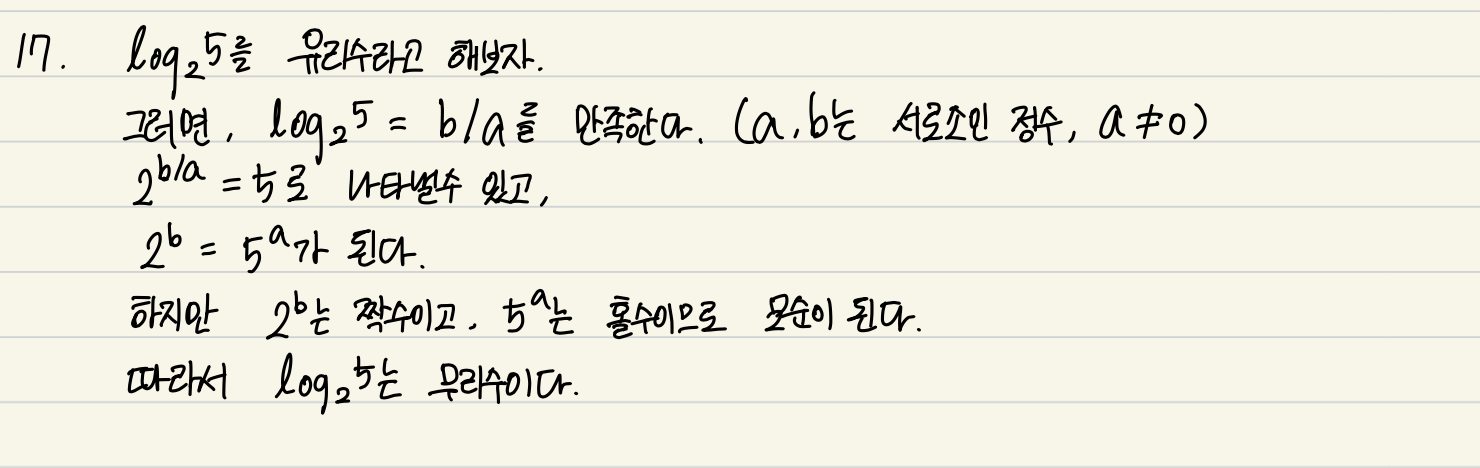 17. log₂5를 유리수라고 해보자.
그러면, log₂5 = b/a를 만족한다. (a, b는 서로소인 정수, a ≠ 0)
2^(b/a) = 5로 나타낼수 있고,
2^b = 5^a가 된다.
하지만 2^b는 짝수이고, 5^a는 홀수이므로 모순이 된다.
따라서 log₂5는 무리수이다.